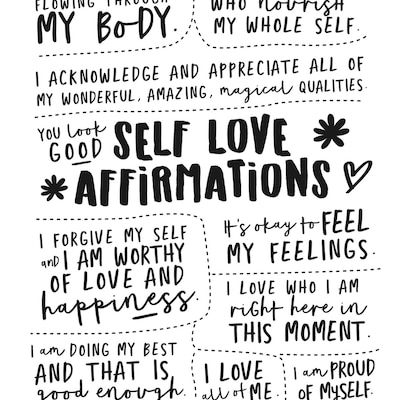 FLOWING THROUGH
MY BODY.
WHO nourish
MY WHOLE SELF.
I ACKNOWLEDGE AND APPRECIATE ALL OF
MY WONDERFUL, AMAZING, magical QUALITIES.
YOU look
GOOD
SELF LOVE
AFFIRMATIONS
I FORGIVE MY SELF
and I AM WORTHY
OF LOVE AND
happiness.
It's okay to FEEL
MY FEELINGS.
I LOVE WHO I AM
right here in
THIS MOMENT.
I am DOING MY BEST
AND THAT IS
good enough.
I LOVE
all of ME.
I am PROUD
OF MYSELF.